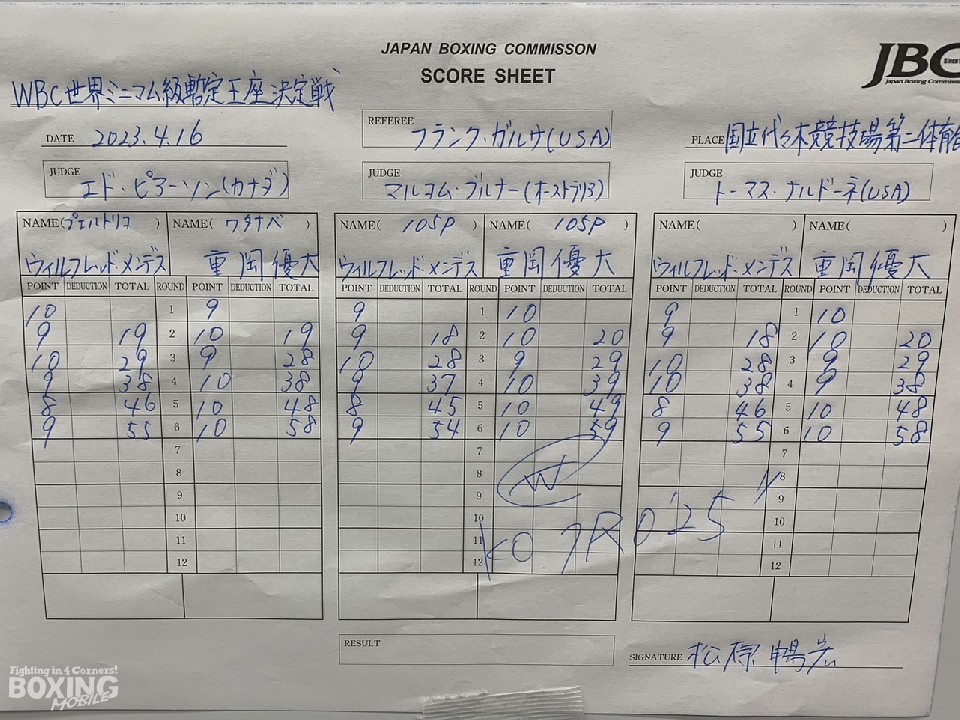 JAPAN BOXING COMMISSON
SCORE SHEET
JBC
Japan Boxing Commiss
WBC世界ミニマム級暫定王座決定戦
DATE 2023.4.16
REFEREE フランク・ガルサ(USA)
PLACE 国立代々木競技場第二体育館
JUDGE エド・ピアーソン(カナダ)
JUDGE マルコム・ブルナー(オーストラリア)
JUDGE トーマス・ナルドーネ(USA)
NAME(プエルトリコ) NAME(ワタナベ) NAME(105P) NAME(105P) NAME( ) NAME( )
ウィルフレッド・メンデス 重岡優大 ウィルフレッド・メンデス 重岡優大 ウィルフレッド・メンデス 重岡優大
POINT DEDUCTION TOTAL ROUND POINT DEDUCTION TOTAL POINT DEDUCTION TOTAL ROUND POINT DEDUCTION TOTAL POINT DEDUCTION TOTAL ROUND POINT DEDUCTION TOTAL
10 1 9 9 1 10 9 1 10
9 19 2 10 19 9 18 2 10 20 9 18 2 10 20
10 29 3 9 28 10 28 3 9 29 10 28 3 9 29
9 38 4 10 38 9 37 4 10 39 10 38 4 9 38
8 46 5 10 48 8 45 5 10 49 8 46 5 10 48
9 55 6 10 58 9 54 6 10 59 9 55 6 10 58
7 7 7
8 8 8
9 9 9
10 10 10
11 11 11
12 12 12
W
KO 7R 0'25"
RESULT
SIGNATURE 松原
Fighting in 4 Corners!
BOXING
MOBILE